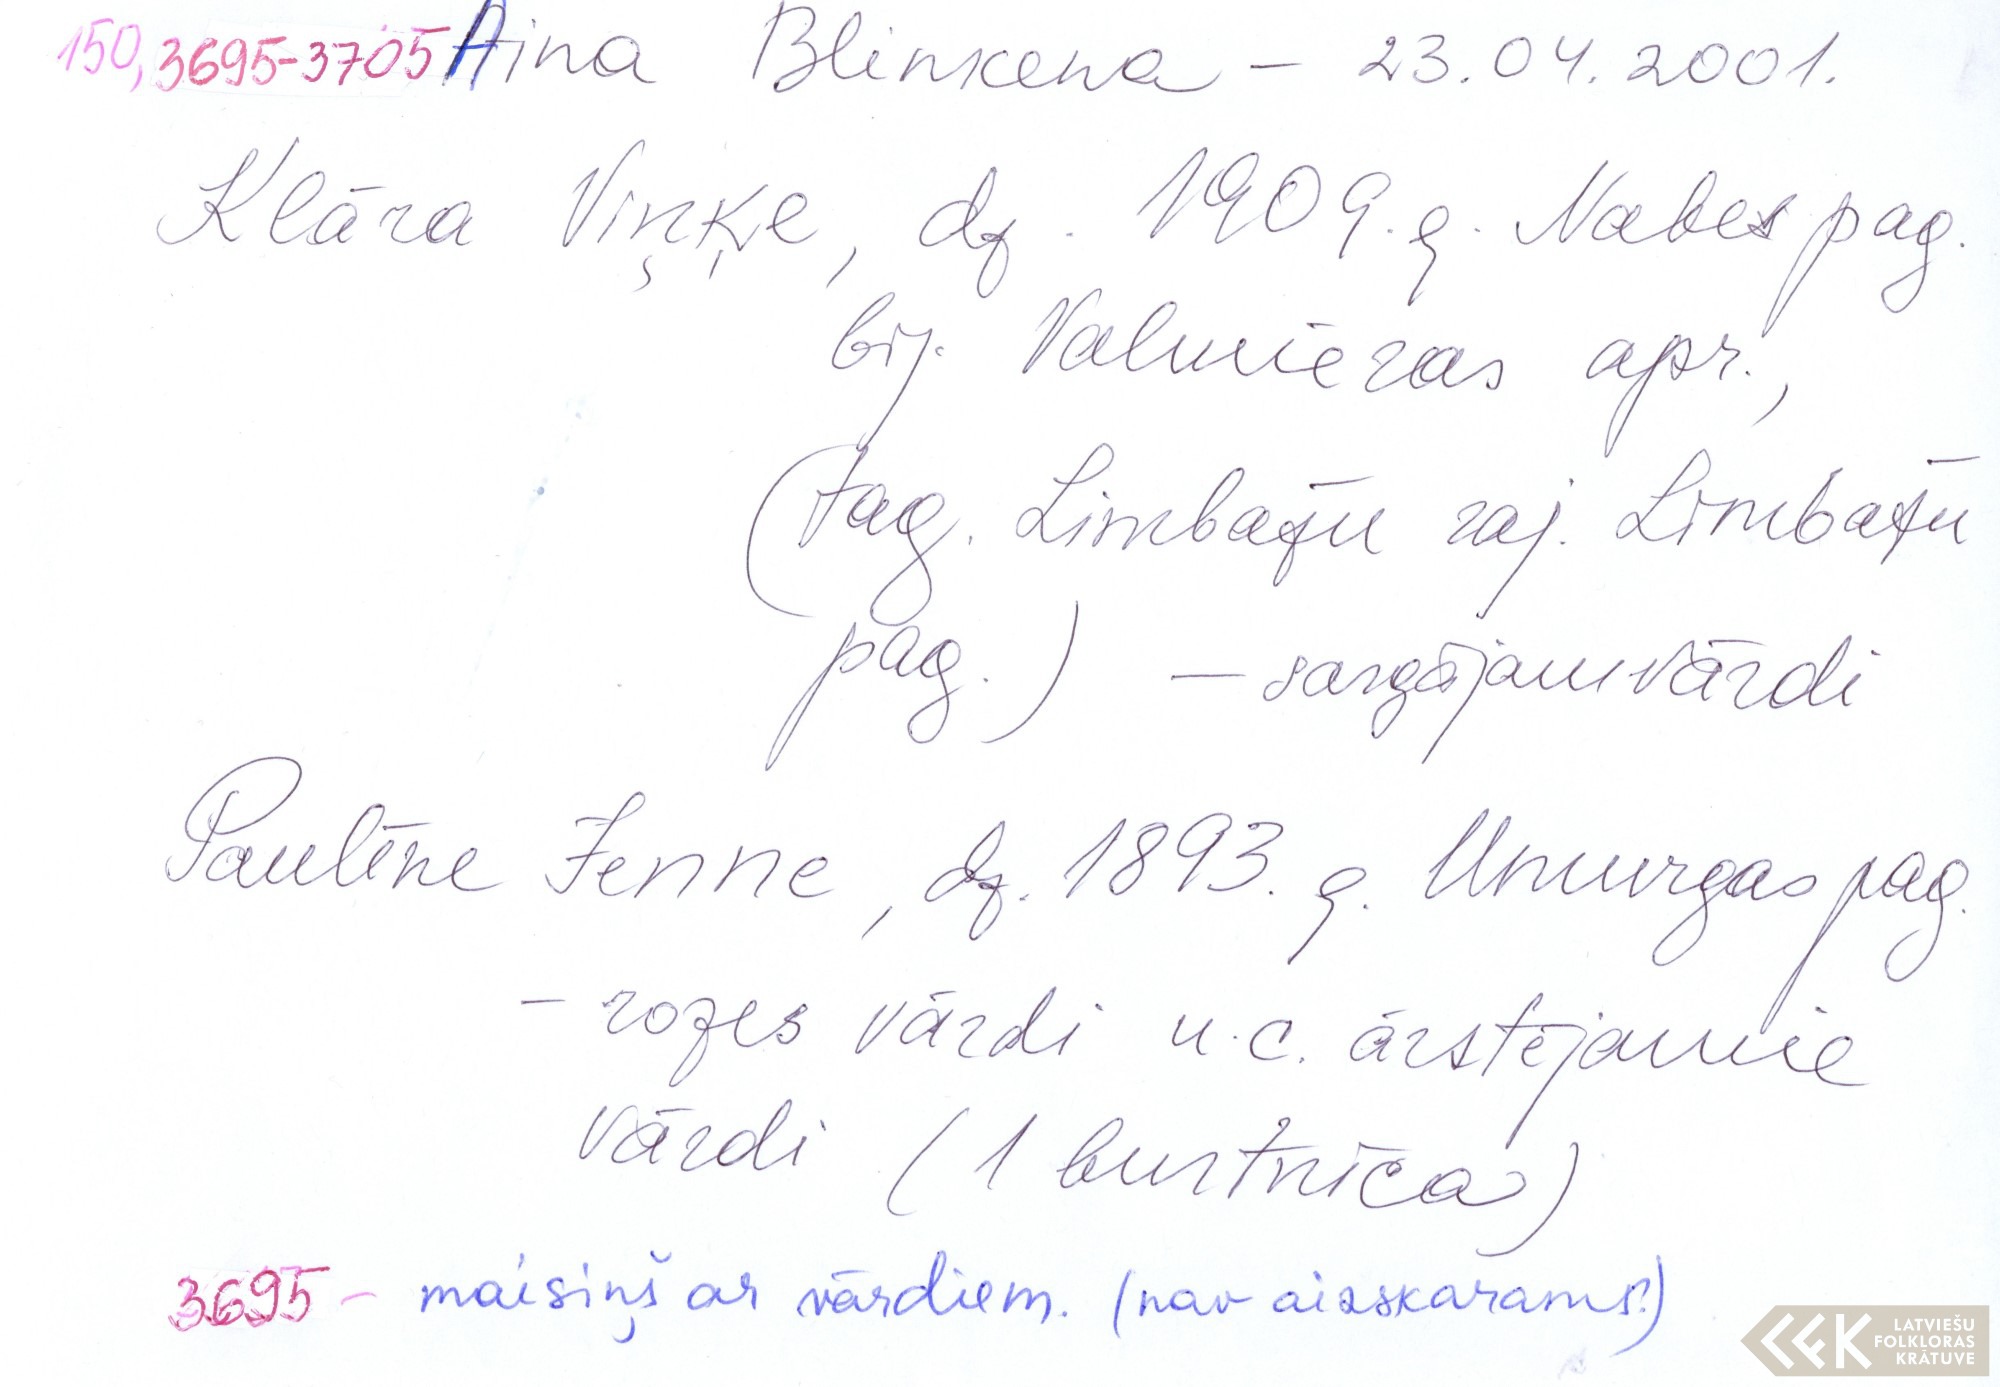 150, 3695-3705 Aina Blinkena – 23.04.2001.
Klāra Viņķe, dz. 1909.g. Nabes pag.
bij. Valmieras apr.,
(tag. Limbažu raj. Limbažu
pag.) – sargājamvārdi
Paulīne Jenne, dz. 1893. g. Umurgas pag.
– rozes vārdi u.c. ārstējamie
vārdi (1 burtnīca)
3695 – maisiņš ar vārdiem. (nav aizskarams!)
LATVIEŠU
FOLKLORAS
KRĀTUVE